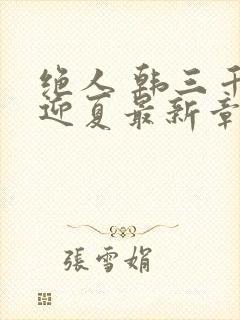 绝人 韩三千
迎夏最新章
張雪娟